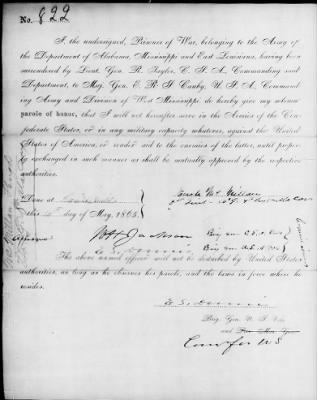 No. 822
I, the undersigned, Prisoner of War, belonging to the Army of
the Department of Alabama, Mississippi and East Louisiana, having been
surrendered by Lieut. Gen. R. Taylor, C. S. A., Commanding said
Department, to Maj. Gen. E. R. S. Canby, U. S. A., Command
ing Army and Division of West Mississippi, do hereby give my solemn
parole of honor, that I will not hereafter serve in the Armies of the Con
federate States, or in any military capacity whatever, against the United
States of America, or render aid to the enemies of the latter, until proper
ly exchanged in such manner as shall be mutually approved by the respective
authorities.
Done at
this day of May, 1865.
Approved
W H Jackson Brig Gen C.S.A.
E. S. Dennis Brig Gen U.S.
The above named officer will not be disturbed by United States
authorities, as long as he observes his parole, and the laws in force where he
resides.
E. S. Dennis
Brig. Gen. U. S. Vols
Com for U.S